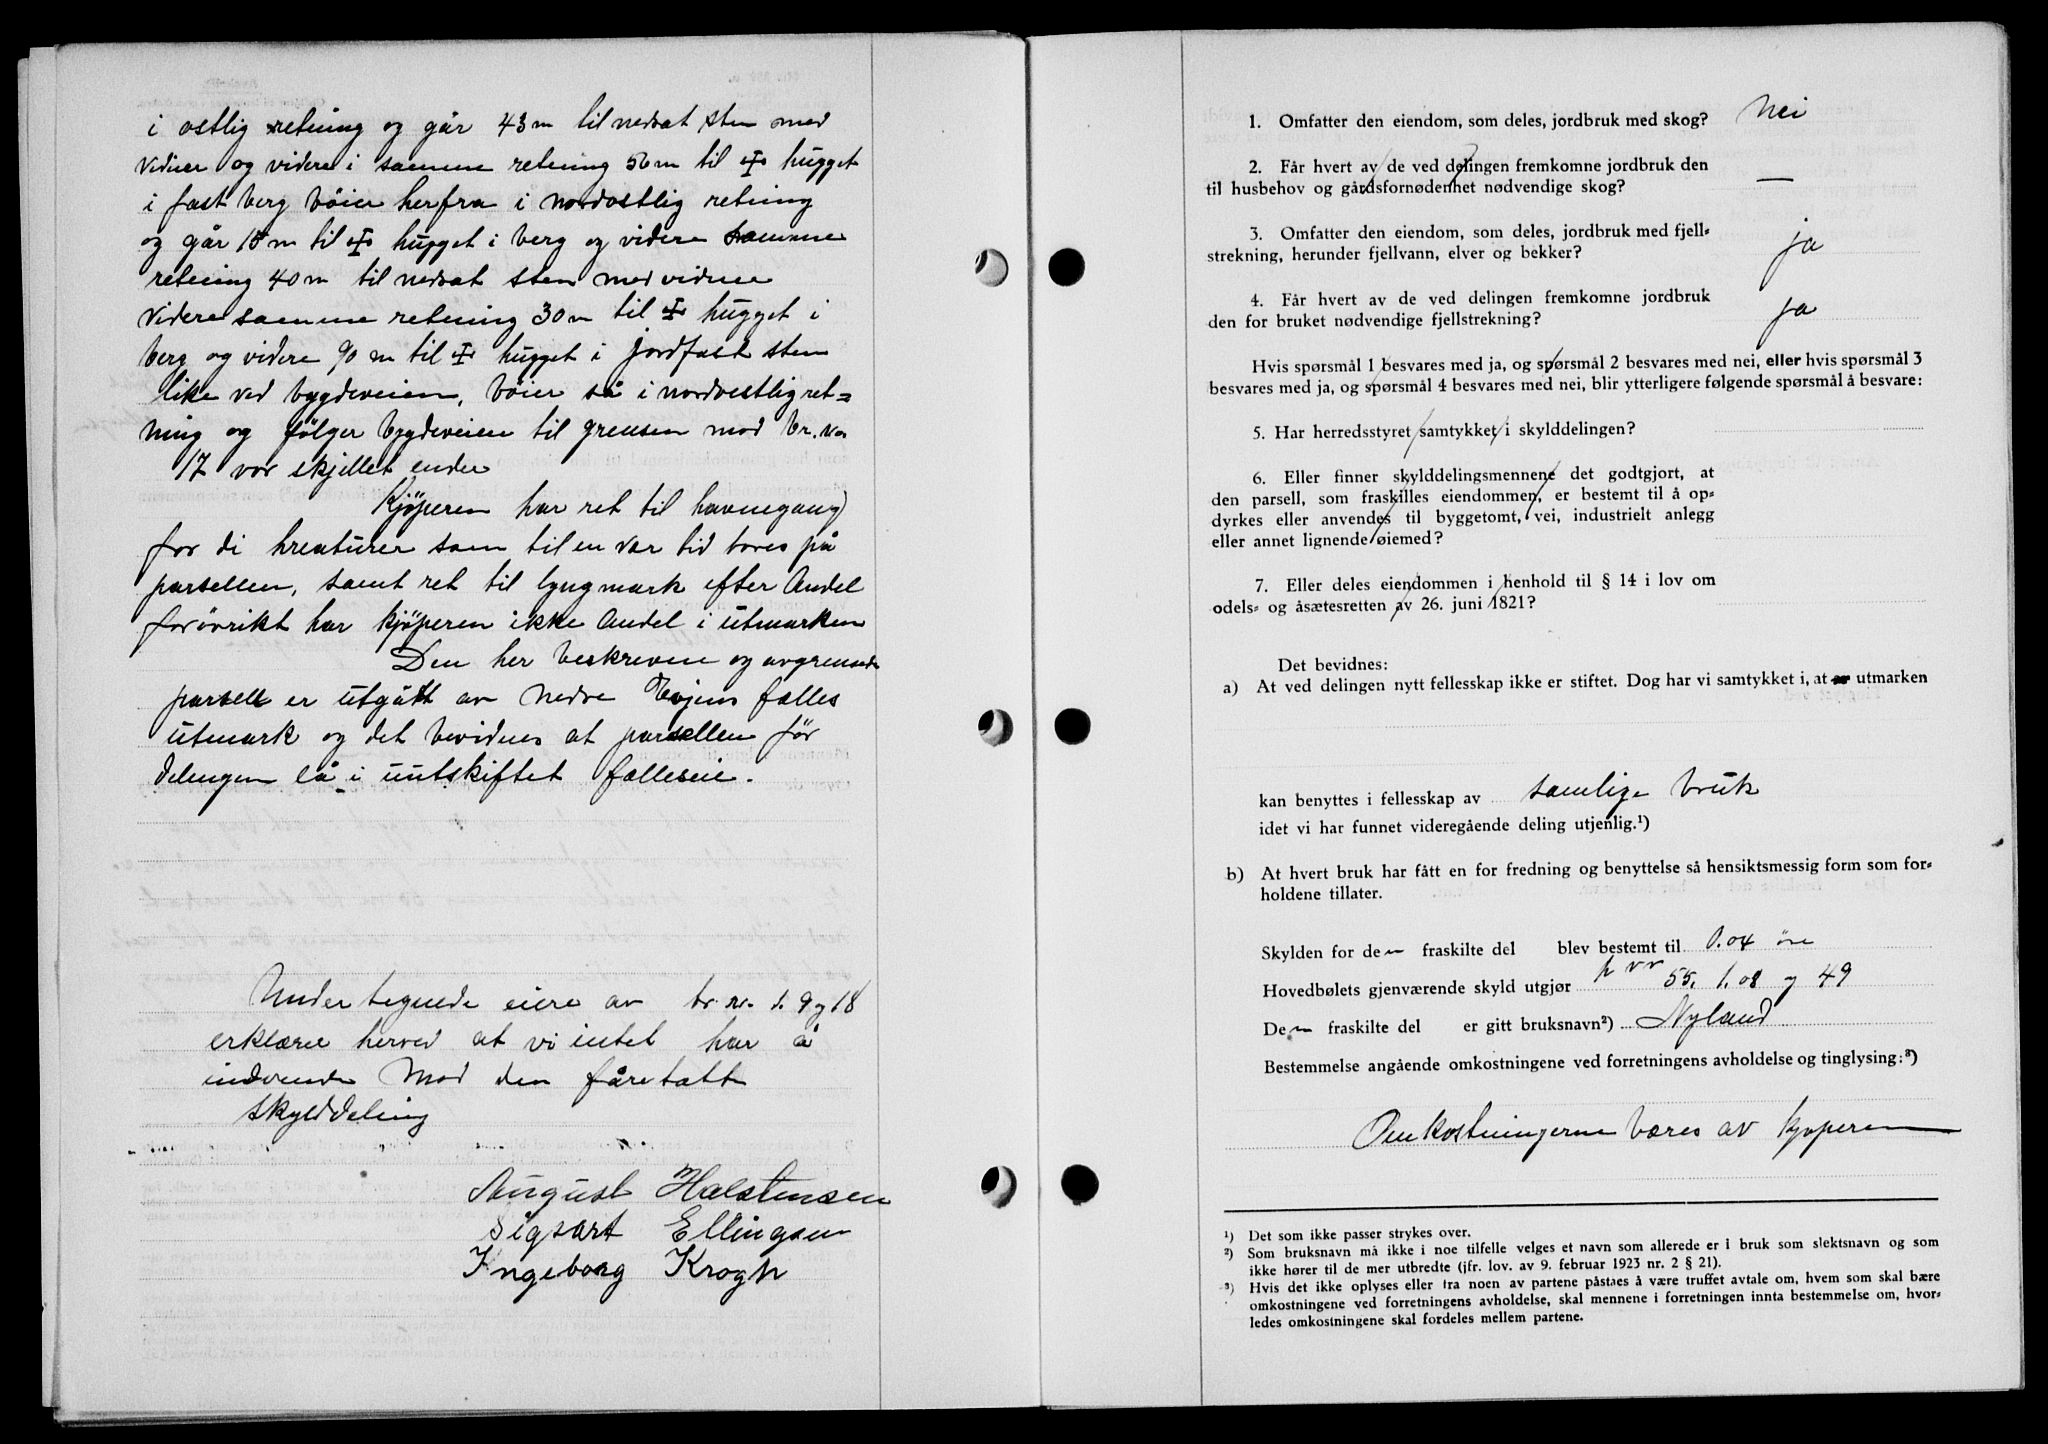 i ostlig retning og går 43 m til nedsat sten med
vidner og videre i samme retning 56 m til hugget
i fast berg bøier herfra i nordostlig retning
og går 18 m til hugget i berg og videre samme
retning 40 m til nedsat sten med vidner
videre samme retning 30 m til hugget i
berg og videre 90 m til hugget i jordfast sten
like ved bygdeveien, bøier så i nordvestlig ret=
ning og følger bygdeveien til grensen mod br. no
17 vor skjellet ender
Kjøperen har ret til havnegang
for di kreaturer som til en var tid fores på
parsellen, samt ret til lyngmark efter Andel
forövrikt har kjøperen ikke Andel i utmarken
Den her beskrevne og avgrensede
parsell er utgått av nedre fælles
utmark og det bevidnes at parsellen før
delingen lå i uutskiftet fælleseie.
Under tegnede eiere av br. nr. 1. 9 og 18
erklærer herved at vi intet har å
indvende mod den fåretatt
skylddeling
August Halstensen
Sigvart Ellingsen
Ingeborg Krogh
1. Omfatter den eiendom, som deles, jordbruk med skog? Nei
2. Får hvert av de ved delingen fremkomne jordbruk den
til husbehov og gårdsfornødenhet nødvendige skog? —
3. Omfatter den eiendom, som deles, jordbruk med fjell=
strekning, herunder fjellvann, elver og bekker? ja
4. Får hvert av de ved delingen fremkomne jordbruk
den for bruket nødvendige fjellstrekning? ja
Hvis spørsmål 1 besvares med ja, og spørsmål 2 besvares med nei, eller hvis spørsmål 3
besvares med ja, og spørsmål 4 besvares med nei, blir ytterligere følgende spørsmål å besvare:
5. Har herredsstyret samtykket i skylddelingen?
6. Eller finner skylddelingsmennene det godtgjort, at
den parsell, som fraskilles eiendommen, er bestemt til å op=
dyrkes eller anvendes til byggetomt, vei, industrielt anlegg
eller annet lignende øiemed?
7. Eller deles eiendommen i henhold til § 14 i lov om
odels= og åsætesretten av 26. juni 1821?
Det bevidnes:
a) At ved delingen nytt fellesskap ikke er stiftet. Dog har vi samtykket i, at utmarken
kan benyttes i fellesskap av samlige bruk
idet vi har funnet videregående deling utjenlig.¹)
b) At hvert bruk har fått en for fredning og benyttelse så hensiktsmessig form som for=
holdene tillater.
Skylden for den fraskilte del blev bestemt til 0.04 øre
Hovedbølets gjenværende skyld utgjør 55, 1.08 og 49
Den fraskilte del er gitt bruksnavn²) Nyland
Bestemmelse angående omkostningene ved forretningens avholdelse og tinglysing:³)
Omkostningerne bæres av kjøperen
¹) Det som ikke passer strykes over.
²) Som bruksnavn må ikke i noe tilfelle velges et navn som allerede er i bruk som slektsnavn og som
ikke hører til de mer utbredte (jfr. lov. av 9. februar 1923 nr. 2 § 21).
³) Hvis det ikke oplyses eller fra noen av partene påstaes å være truffet avtale om, hvem som skal bære
omkostningene ved forretningens avholdelse, skal mennene i forretningen innta bestemmelse om, hvor=
ledes omkostningene skal fordeles mellem partene.